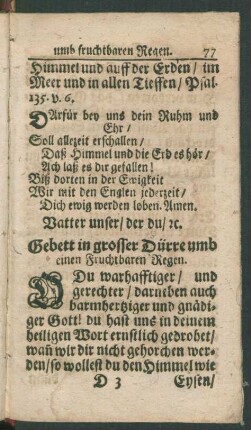 umb fruchtbaren Regen. 77
Himmel und auff der Erden / im
Meer und in allen Tieffen / Psal.
135. v. 6.
DArfür bey uns dein Ruhm und
Ehr /
Soll allezeit erschallen /
Daß Himmel und die Erd es hör /
Ach laß es dir gefallen!
Biß dorten in der Ewigkeit
Wir mit den Englen jederzeit /
Dich ewig werden loben. Amen.
Vatter unser / der du / ꝛc.
Gebett in grosser Dürre umb
einen Fruchtbaren Regen.
O Du warhafftiger / und
gerechter / darneben auch
barmhertziger und gnädi-
ger Gott! du hast uns in deinem
heiligen Wort ernstlich gedrohet /
wañ wir dir nicht gehorchen wer-
den / so wollest du den Himmel wie
D 3 Eysen /